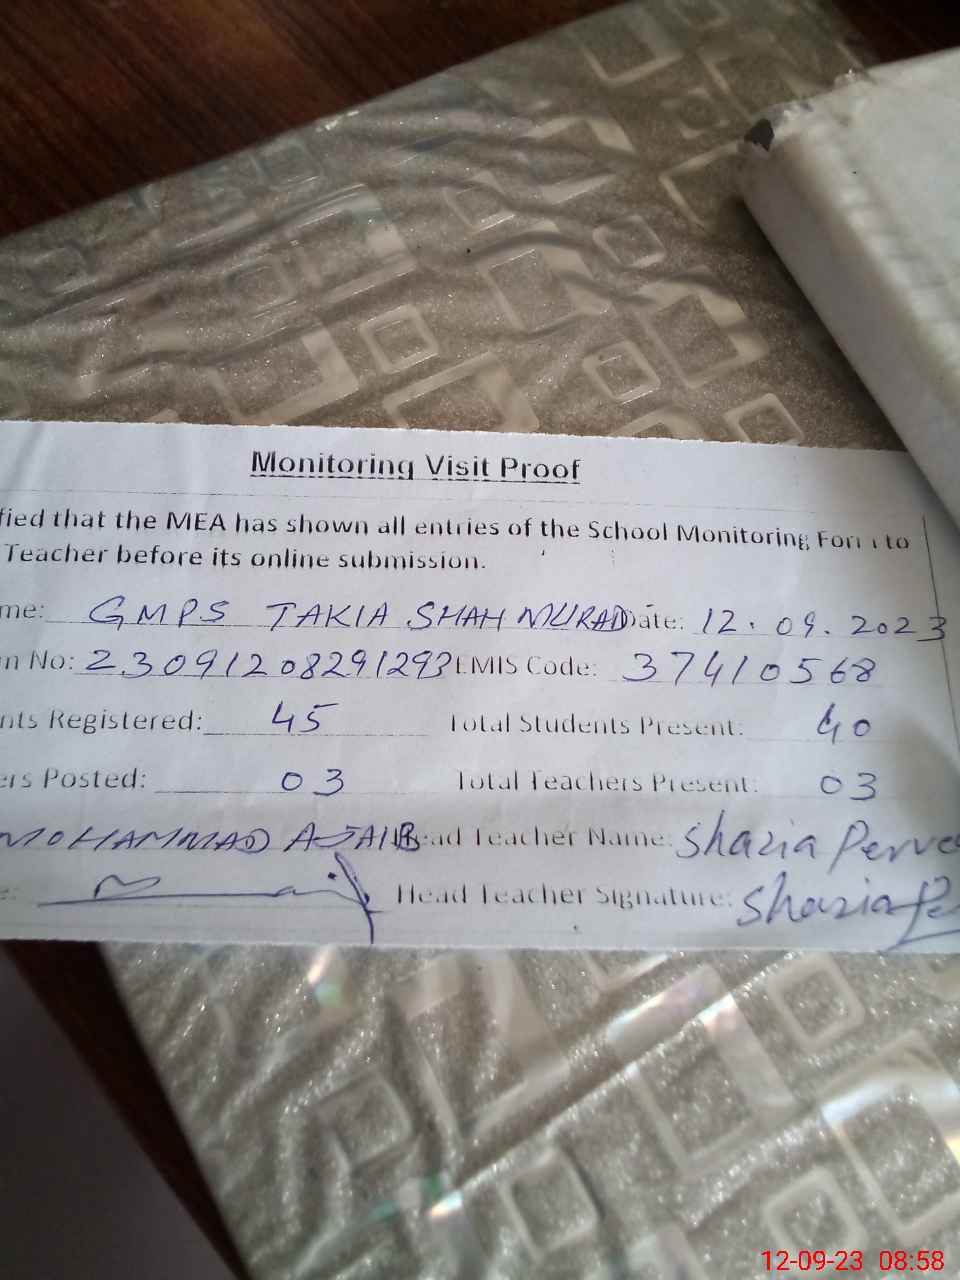 Monitoring Visit Proof
fied that the MEA has shown all entries of the School Monitoring Form to
Teacher before its online submission.
me: GMPS TAKIA SHAH MURAD Date: 12.09.2023
n No: 23091208291293 EMIS Code: 37410568
nts Registered: 45 Total Students Present: 40
ers Posted: 03 Total Teachers Present: 03
MOHAMMAD AJAIB Head Teacher Name: Shazia Perve
e: Head Teacher Signature: Shazia Pe
12-09-23 08:58